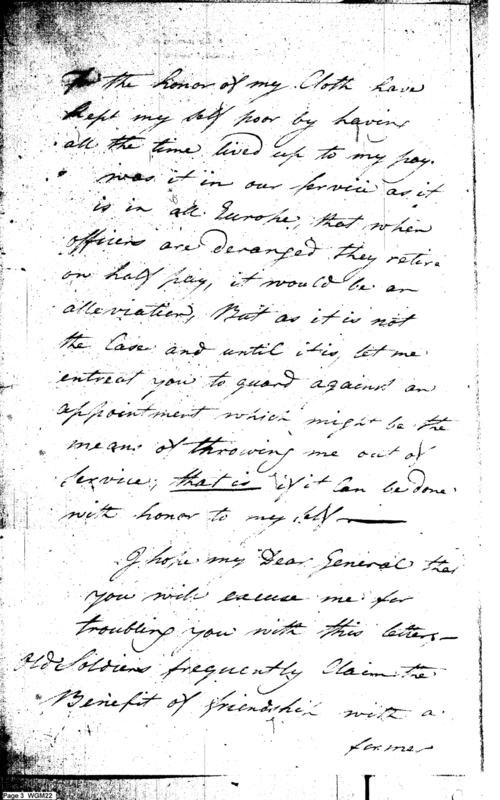 the honor of my Cloth have
kept my self poor by having
all the time lived up to my pay.
was it in our Service as it
is in all Europe, that when
officers are deranged they retire
on half pay, it would be an
alleviation, But as it is not
the Case and until it is, let me
entreat you to guard against an
appointment which might be the
means of throwing me out of
Service; that is if it Can be done
with honor to my self —
I hope my Dear General that
you will excuse me for
troubling you with this letter —
Old Soldiers frequently Claim the
Benefit of friendship with a
former
Page 3 WGM22